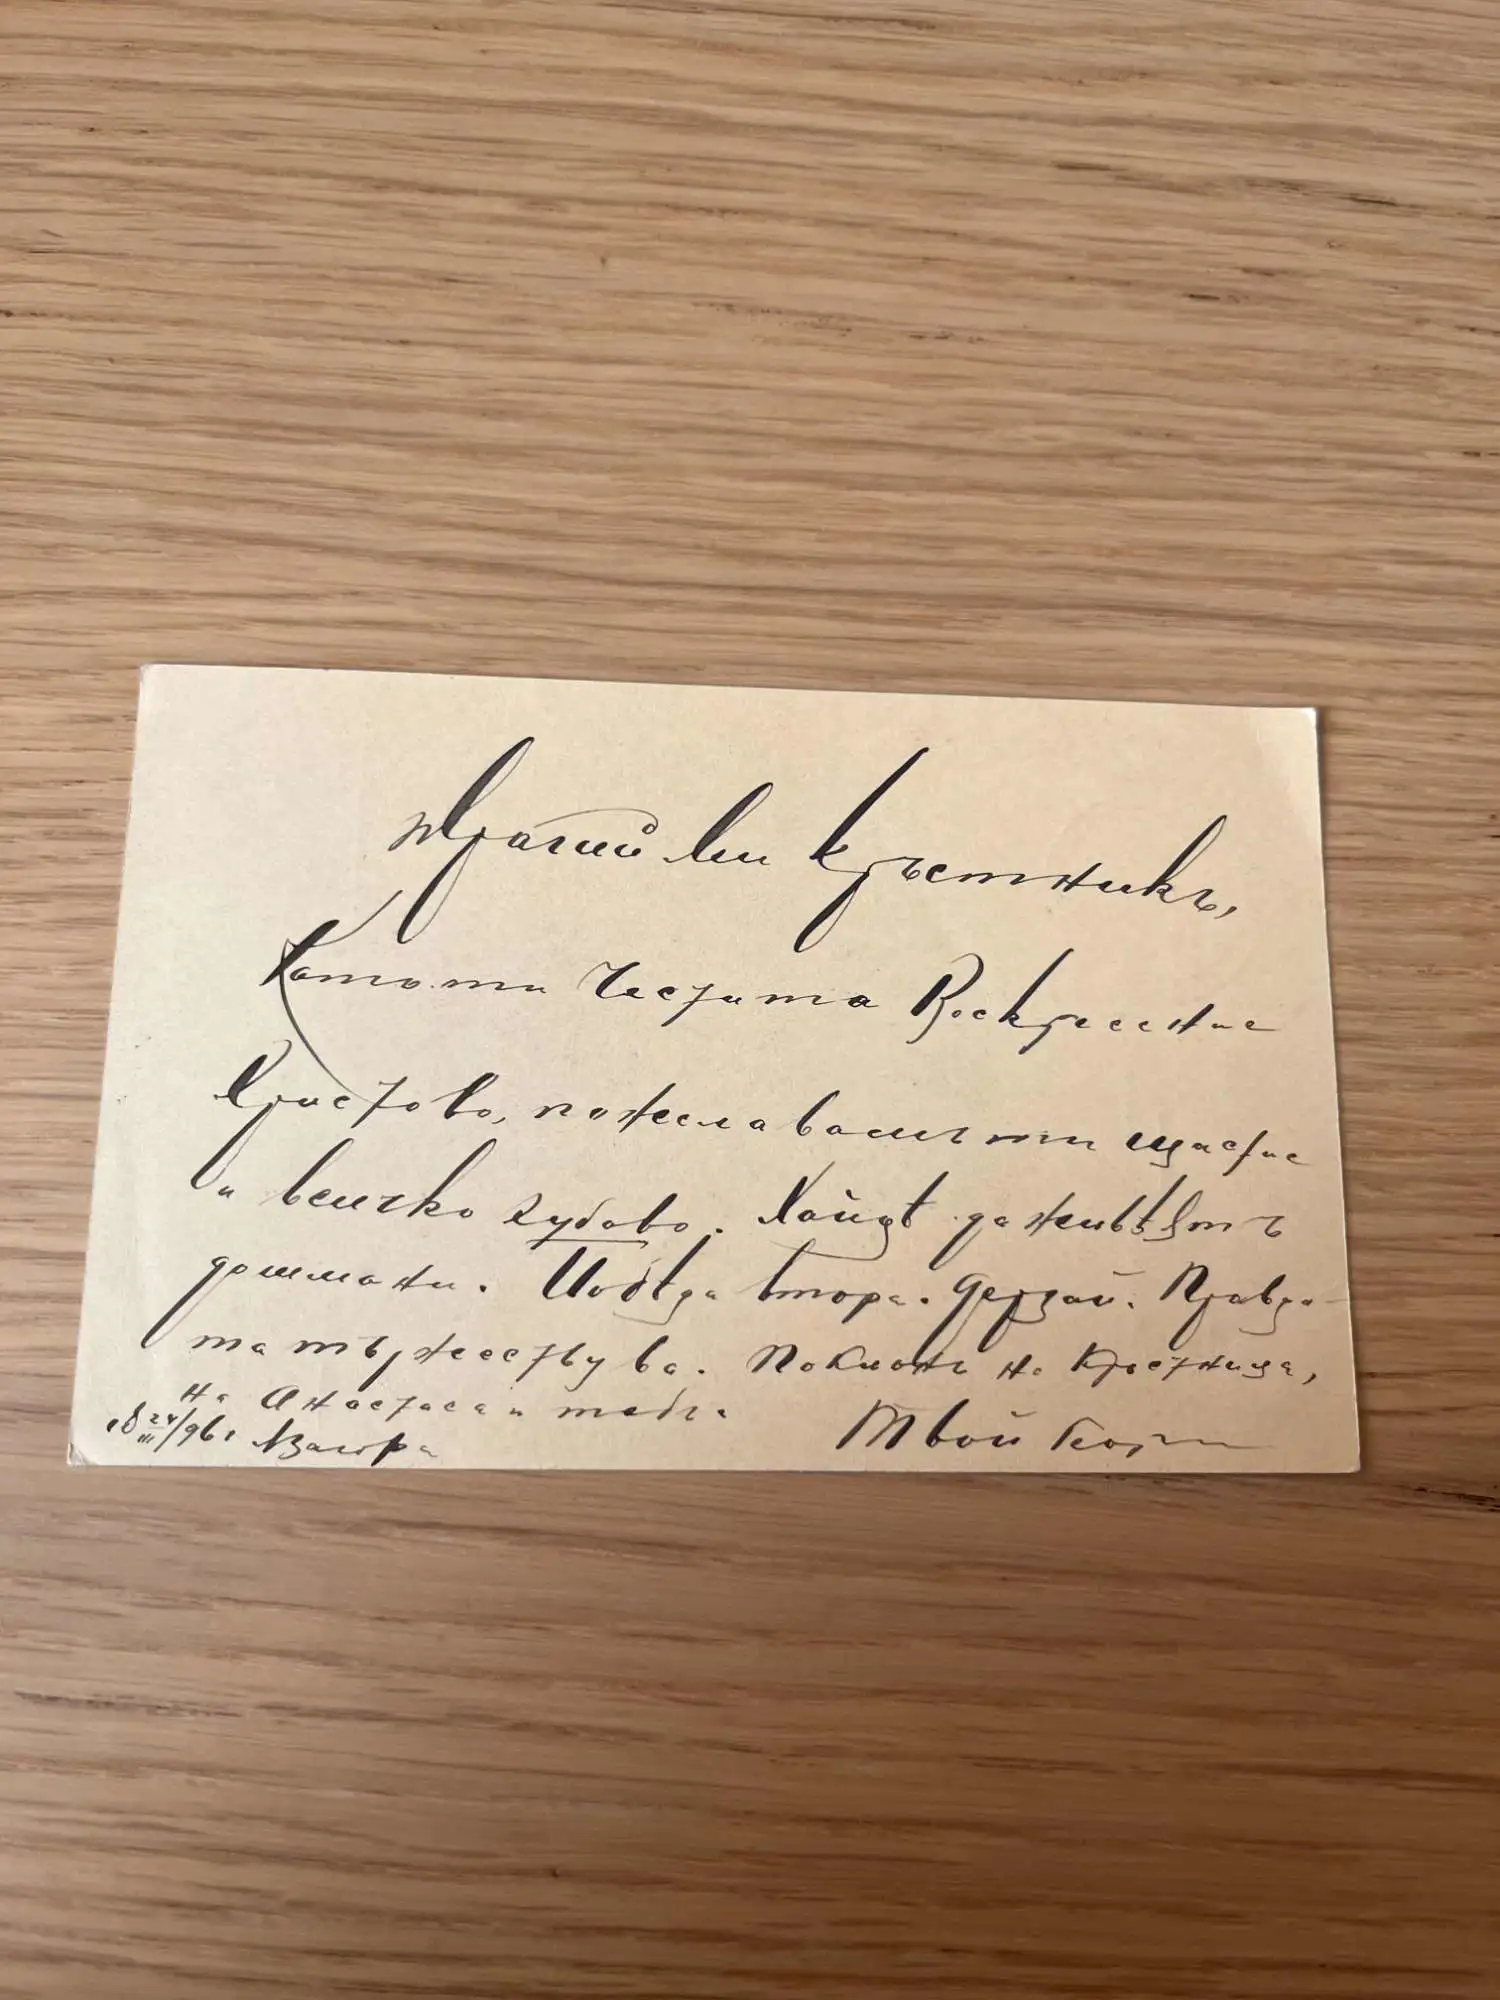 Драгий ми Кръстникъ,
Като ти Честита Воскресение
Христово, пожелавамъ ти щастие
и всичко хубаво. Хайде да живѣятъ
душмани. Побѣда втора. Дерзай. Правда-
та тържествува. Поклонъ на Кръстница,
на Анастаса и тебе.
18 24/III/96 г. Твой Георги